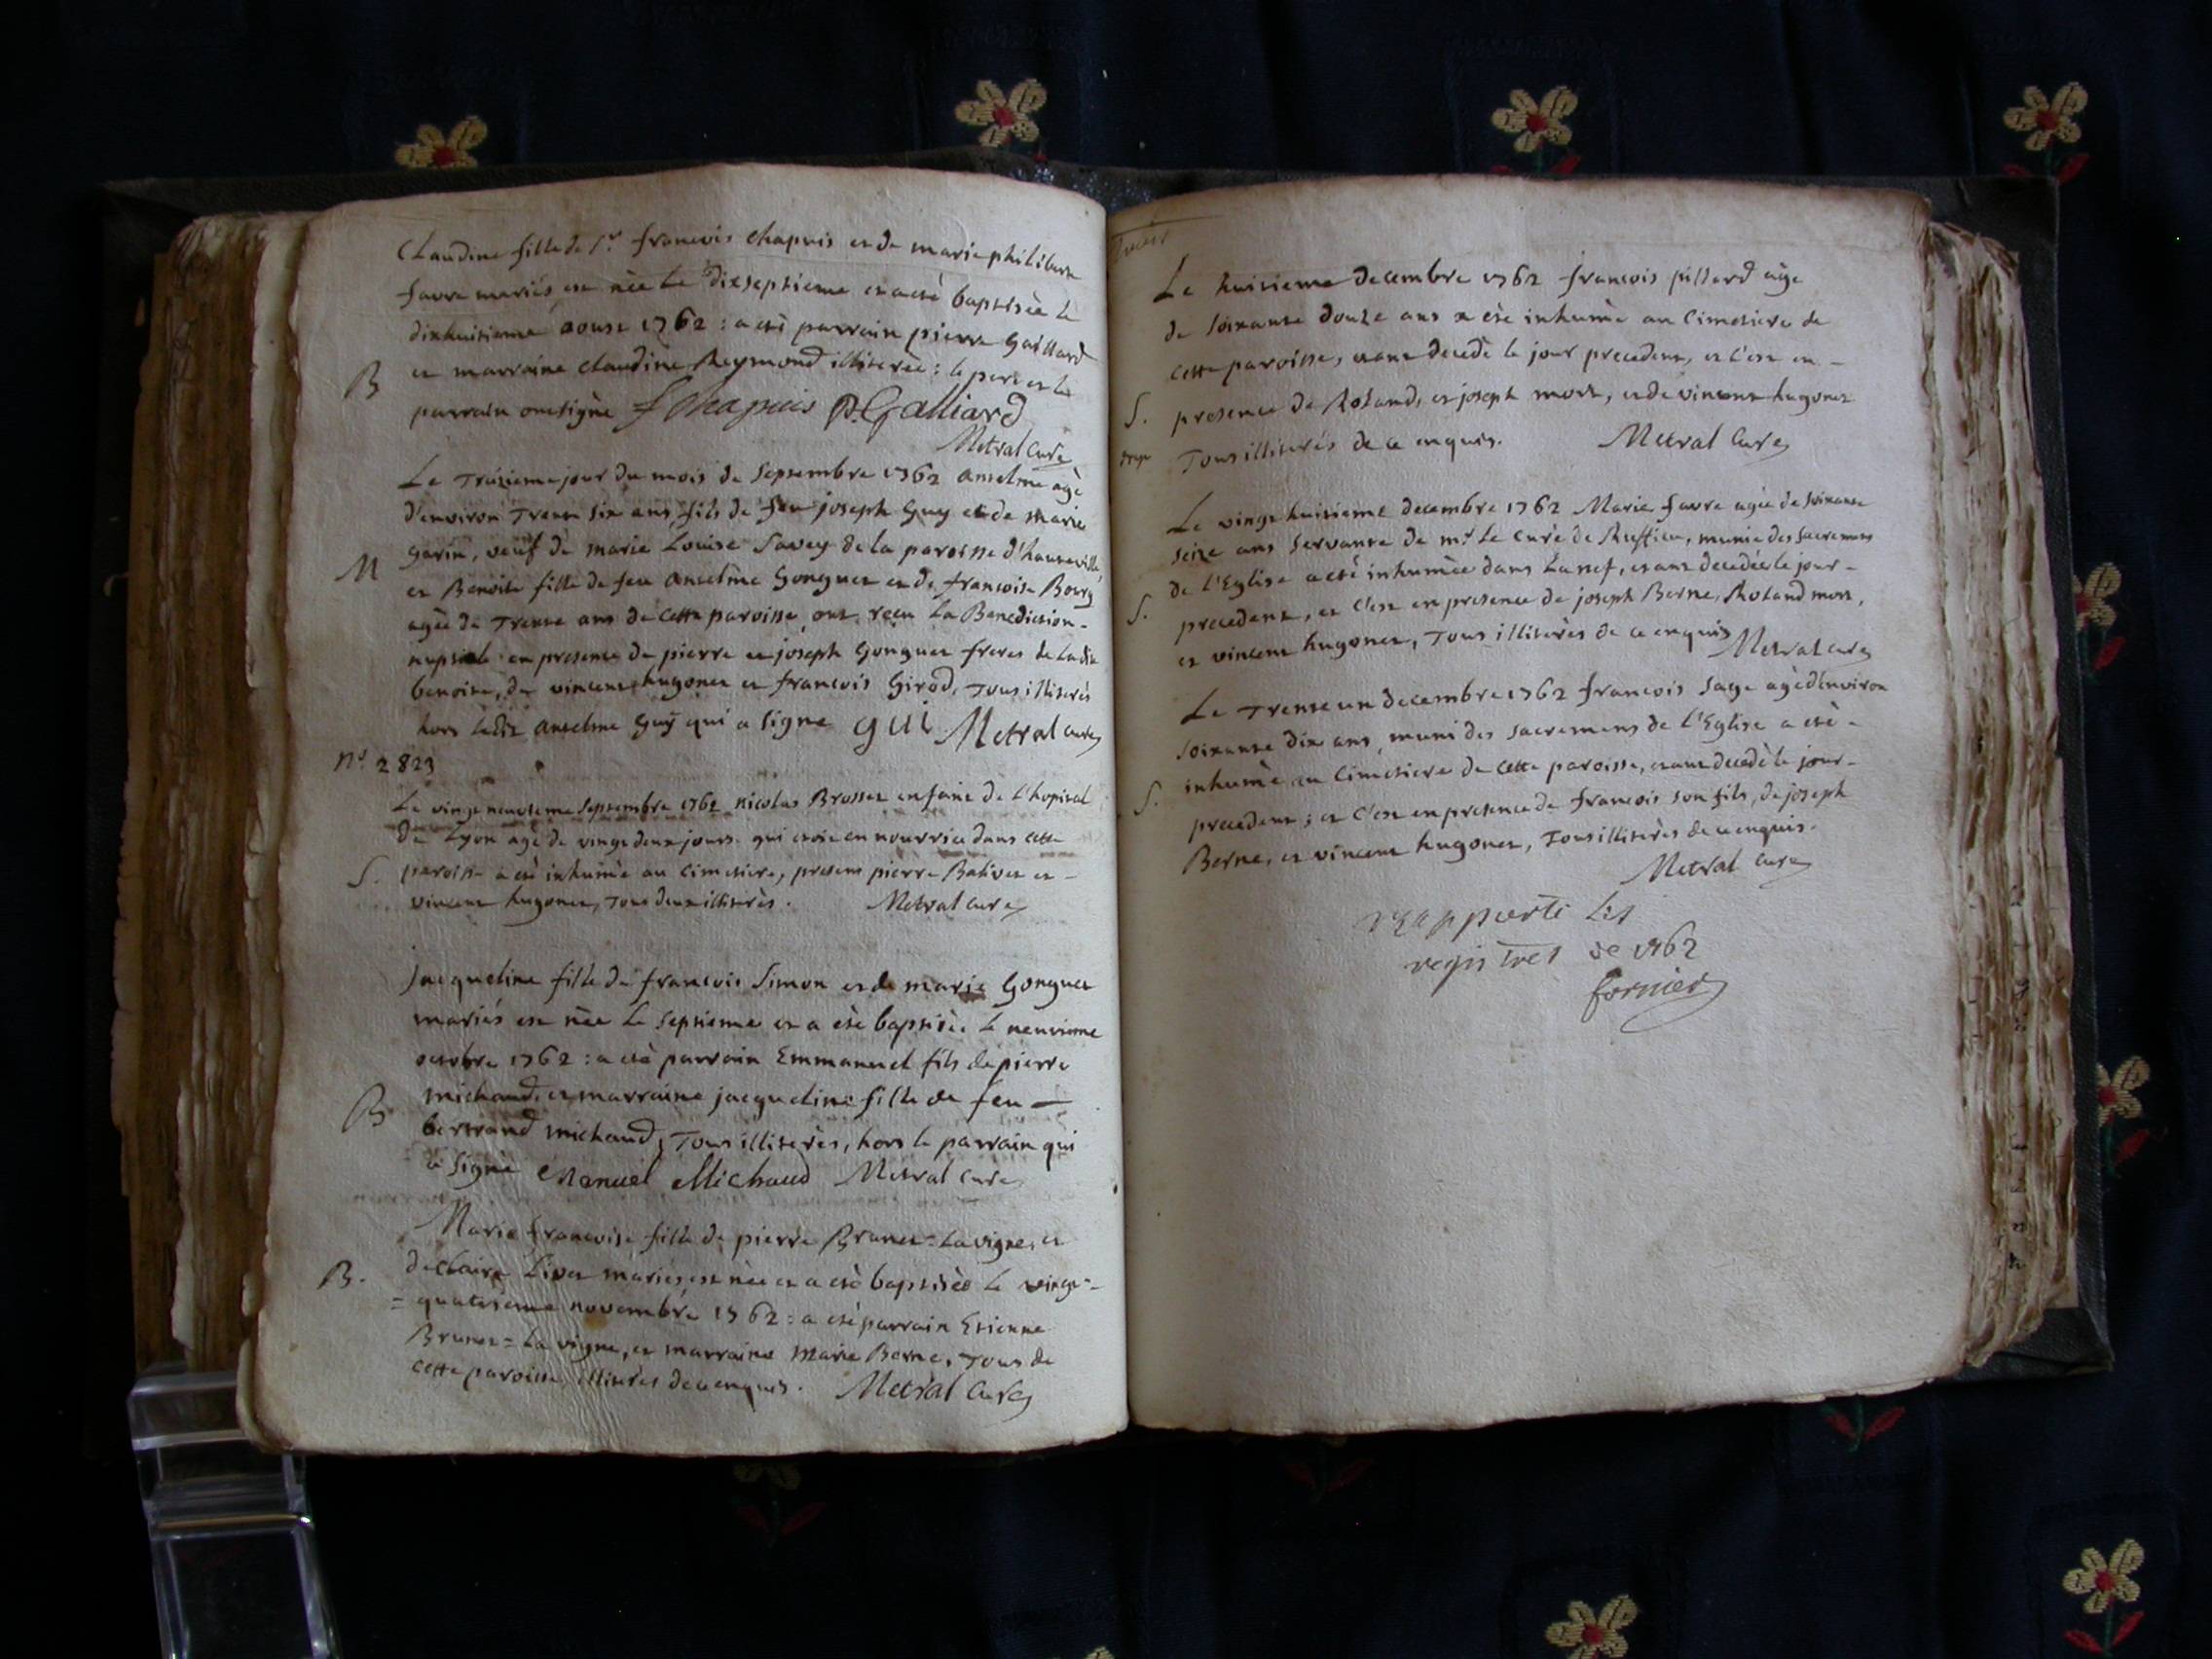 Claudine fille de Sr francois chapuis et de marie philiberte
favre mariés est née le dixseptieme et a eté baptisée le
dixhuitieme aoust 1762 : a eté parrain pierre Gaillard
et marraine claudine Reymond illiterée : le pere et le
B
parrain ont signé f Chapuis P. Galliard
Metral Curé
Le Treizieme jour du mois de Septembre 1762 anselme agé
d'environ Trente six ans fils de feu joseph Guy et de marie
garin, veuf de marie Louise Savey de la paroisse d'hauteville,
M
et Benoite fille de feu anselme Gonguet et de francoise Bourg
agée de Trente ans de cette paroisse, ont reçu La Benediction-
nuptiale en presence de pierre et joseph Gonguet freres de Ladite
benoite, de vincent hugonet et francois Girod, Tous illiterés
hors ledit anselme Guy qui a signé gui Metral curé
n° 2823
Le vingt neuvieme Septembre 1762 nicolas Brosset enfant de L'hopital
de Lyon agé de vingt deux jours qui etoit en nourrice dans cette
S. paroisse a eté inhumé au cimetiere, present pierre Balivet et -
vincent hugonet, Tous deux illiterés. Metral curé
jacqueline fille de francois Simon et de marie Gonguet
mariés est née Le Septieme et a eté baptisée le neuvieme
octobre 1762 : a eté parrain Emmanuel fils de pierre
michaud, et marraine jacqueline fille de feu -
B
bertrand michaud, Tous illiterés, hors le parrain qui
a signé Manuel Michaud Metral curé
Marie francoise fille de pierre Brunet = Lavigne, et
B. de claire Livet mariés est née et a eté baptisée Le vingt-
= quatrieme novembre 1762 : a eté parrain Etienne
Brunet = La vigne, et marraine Marie Berne, Tous de
cette paroisse, illiterés de ce enquis. Metral Curé
Le huitieme decembre 1762 francois pillard agé
de Soixante douze ans a eté inhumé au Cimetiere de
cette paroisse, etant decedé le jour precedent, et c'est en -
S. presence de Roland, et joseph mort, et de vincent hugonet
Tous illiterés de ce enquis. Metral Curé
Le vingt huitieme decembre 1762 Marie favre agée de Soixante
seize ans Servante de mr. Le curé de Ruffieu, munie des Sacremens
de l'Eglise a eté inhumée dans La nef, etant decedée le jour -
S. precedent, et c'est en presence de joseph Berne, Roland mort,
et vincent hugonet, Tous illiterés de ce enquis Metral curé
Le Trente un decembre 1762 francois Sage agé d'environ
soixante dix ans, muni des sacremens de l'Eglise a eté -
S. inhumé au Cimetiere de cette paroisse, etant decedé le jour -
precedent ; et c'est en presence de francois son fils, de joseph
Berne, et vincent hugonet, Tous illiterés de ce enquis.
Metral Curé
rapporté les
registres de 1762
fornier